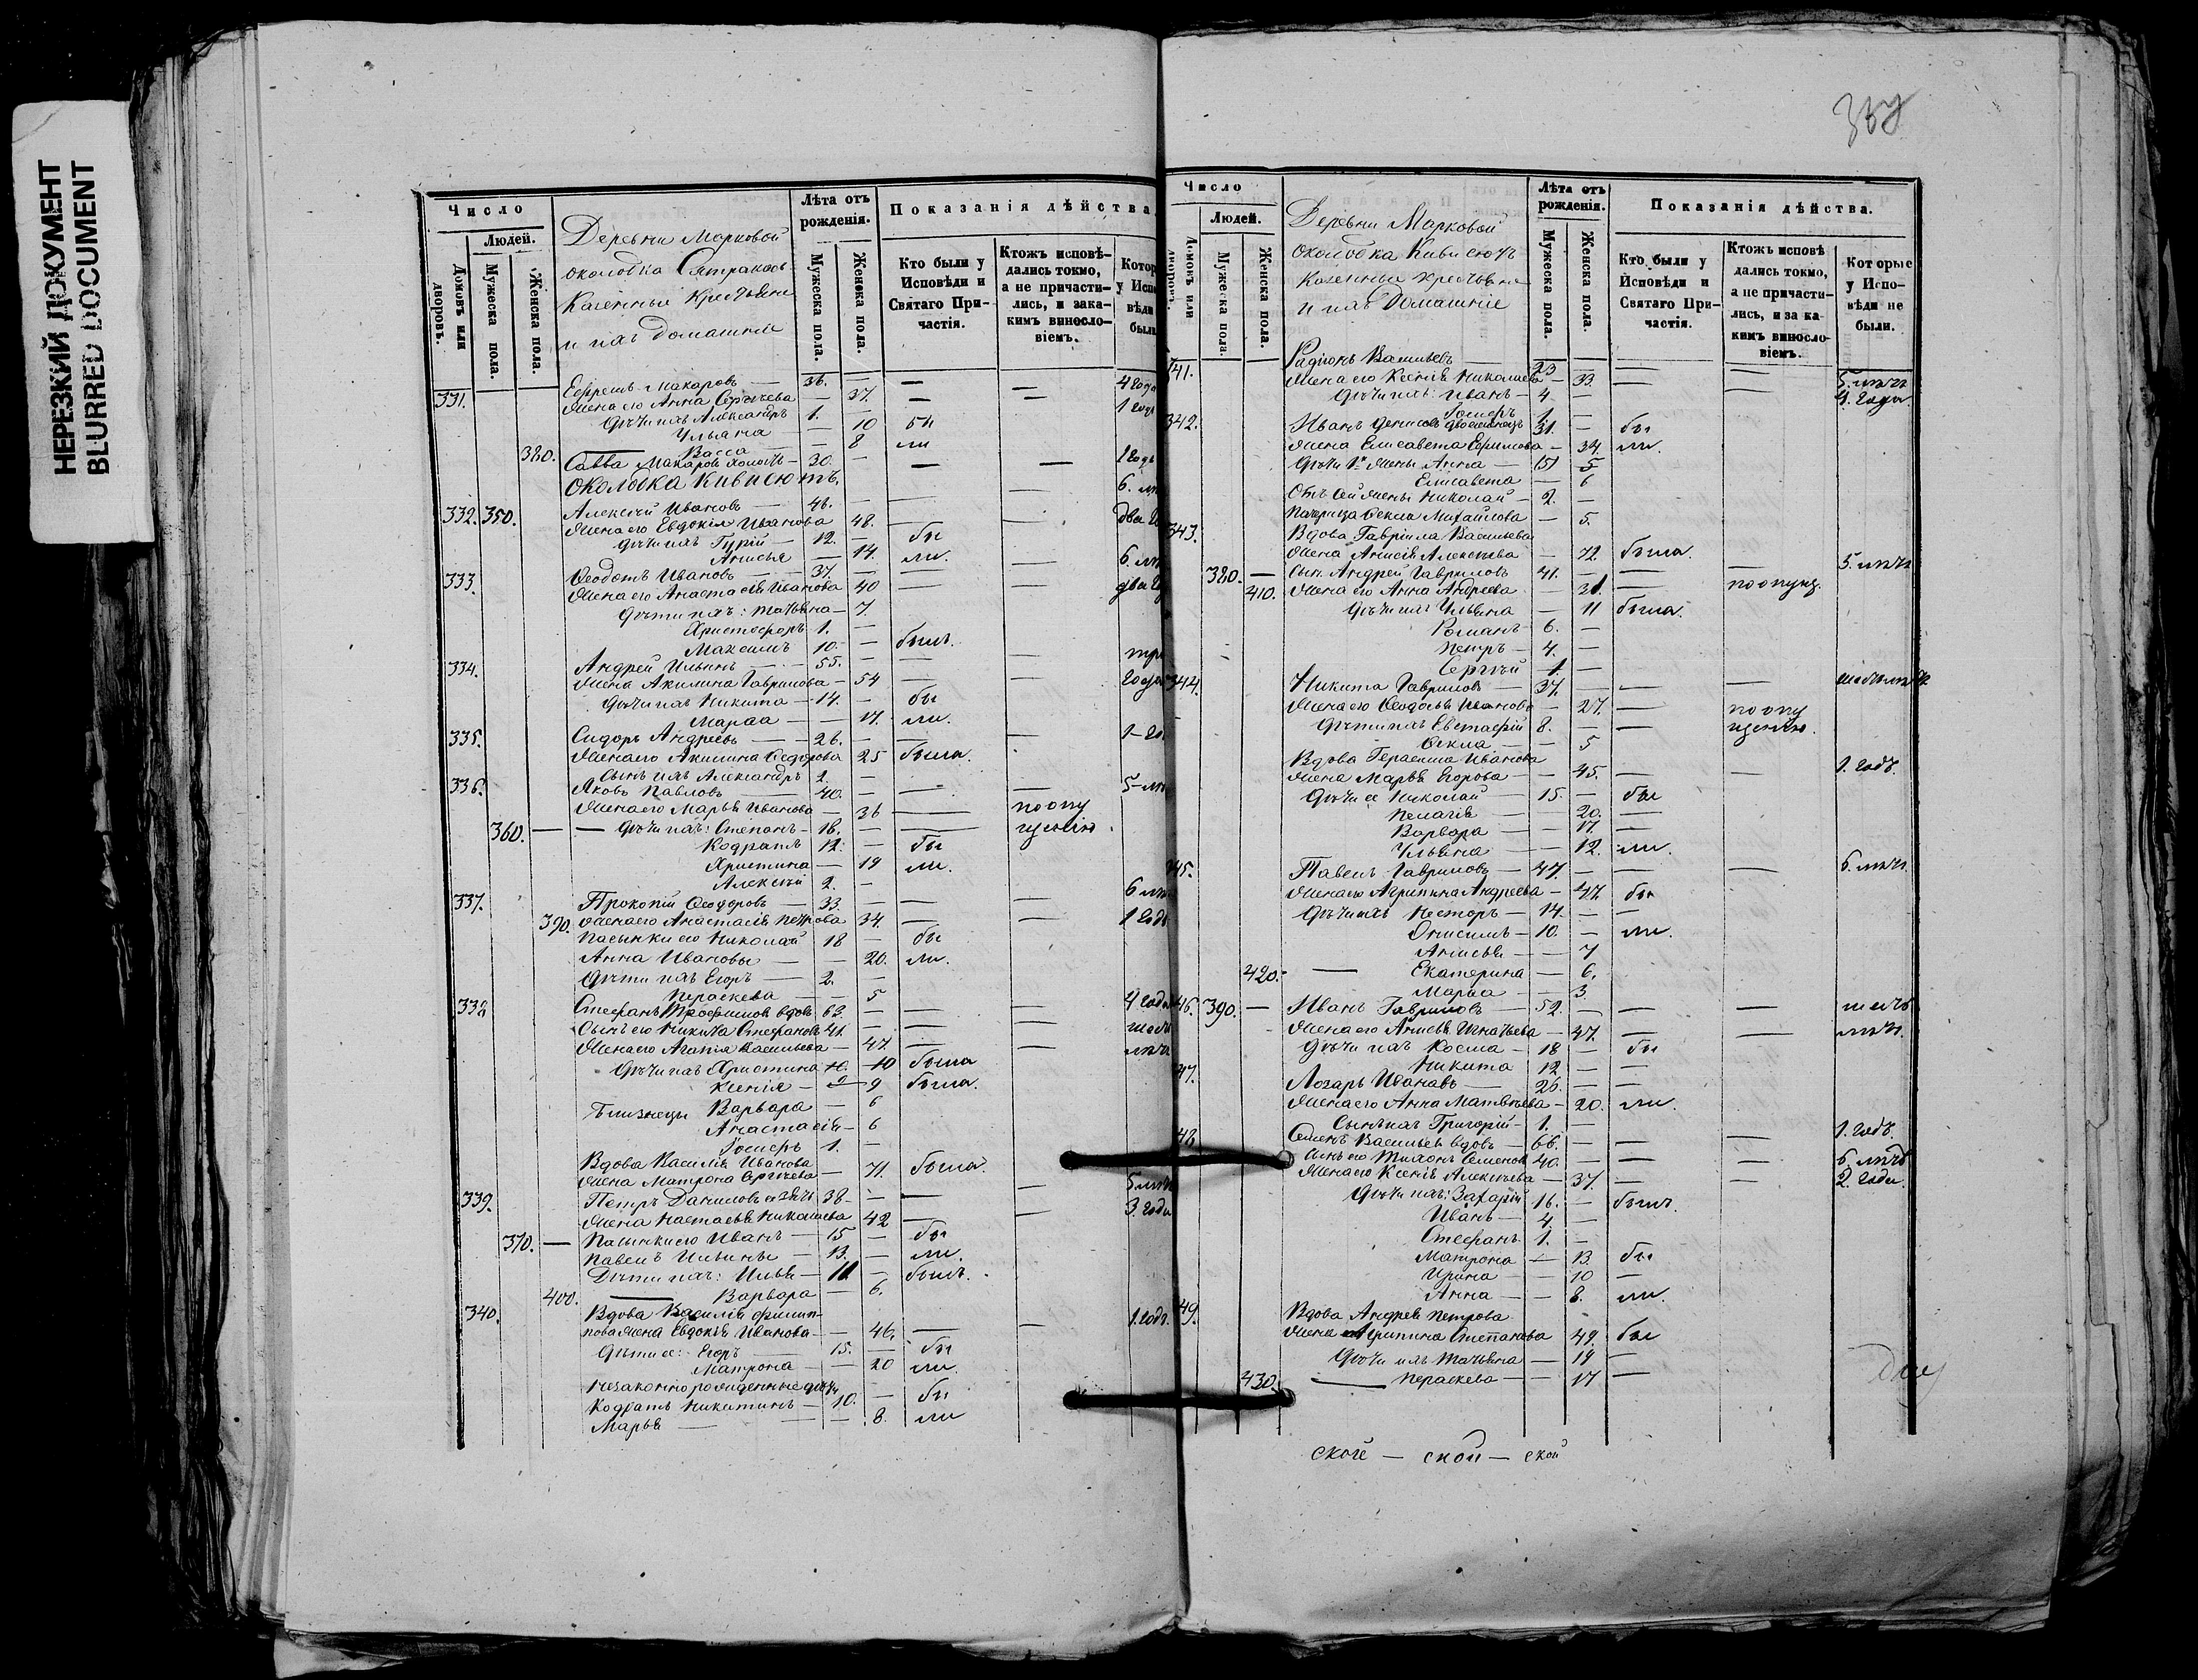 НЕРЕЗКИЙ ДОКУМЕНТ
BLURRED DOCUMENT
Число
Людей.
Домовъ или дворовъ.
Мужеска пола.
Женска пола.
Деревни Марковой
околодка
Казенные Крестьяне
и ихъ домашніе
Лѣта отъ рожденія.
Мужеска пола.
Женска пола.
Показанія дѣйства
Кто были у Исповѣди и Святаго Причастія.
Ктожъ исповѣдались токмо, а не причастились, и заканимъ винословіемъ.
331. Ефремъ Макаровъ — 36. — — 4 года
Жена его Анна Сергѣева — 37. — — 1 годъ
Дѣти ихъ Александръ 1. —
Ульяна — 10 бы
Васса — 8 ли
380. Савва Макаровъ — 30. — — — 1 годъ
околодка Кивисютъ.
332. 350. Алексѣй Ивановъ — 46. — — —
Жена его Евдокія Иванова 48. — — два
Дѣти ихъ Гурій — 12. — бы
Анисья — 14. ли.
333. Ѳеодотъ Ивановъ — 37. — — —
Жена его Анастасія Иванова 40 — — два
Дѣти ихъ: Татьяна — 7
Христофоръ 1. —
Максимъ 10. — былъ.
334. Андрей Ильинъ — 55. — — — три
Жена Акилина Гаврилова — 54 — — года
Дѣти ихъ Никита — 14. — бы
Марѳа — — 17. ли.
335. Сидоръ Андреевъ — 26. — — —
Жена его Акилина Ѳедорова 25 была.
Сынъ ихъ Александръ 2. —
336. Яковъ Павловъ — 40. — — —
Жена его Марья Иванова — 36 — по опу
360. — Дѣти ихъ: Степанъ — 18. — — щенію.
Кодратъ 12. — бы
Христина — 19 ли.
Алексѣй 2. —
337. Прокопій Ѳеодоровъ — 33. — — —
390. Жена его Анастасія Петрова 34. — — 1 годъ
Пасынки его Николай 18 — бы
Анна Ивановы — — 20. ли.
Дѣти ихъ Егоръ — 2. —
Пераскева — — 5
338 Стефанъ Трофимовъ вдовъ 62. — — — 4 года
Сынъ его Никита Стефановъ 41. — — —
Жена его Агапія Васильева — 47. — —
Дѣти ихъ Христина — 10 была
Ксенія — 9 была.
Близнецы Варвара — 6
Анастасія — 6
1. —
Вдова Василія Иванова
Жена Матрона Сергѣева — 71. была.
339. Петръ Даниловъ 38. — — —
Жена Настасья Николаева 42 — — 3. года
370. — Пасынки его Иванъ — 15 — бы
Павелъ Ильины — 13. — ли.
Дѣти ихъ: Илья — 11. — былъ.
400. — Варвара — 6.
340. Вдова Василія Филип-
пова жена Евдокія Иванова — — 46. — — 1. годъ.
Дѣти ее: Егоръ — 15. — бы
Матрона — — 20 ли
Незаконнорожденные дѣти
Кодратъ Никитинъ — 10. — бы
Марья — — 8. ли
Число
Людей.
Мужеска пола.
Женска пола.
Деревни Марковой
околодка Кивисютъ
Казенные крестьяне
и ихъ домашніе
Лѣта отъ рожденія.
Мужеска пола.
Женска пола.
Показанія дѣйства.
Кто были у Исповѣди и Святаго Причастія.
Ктожъ исповѣдались токмо, а не причастились, и за какимъ винословіемъ.
Которые у Исповѣди не были.
341. Радіонъ Васильевъ — 23 — — — 5. лѣтъ
Жена его Ксенія Николаева — 33. — — 4. года.
Дѣти ихъ: Иванъ — 4 —
1. —
342. Иванъ Денисовъ 31. — бы
Жена Елисавета Ефимова — 34. ли.
Дѣти 1й жены Анна — 5
Елисавета — 6
Отъ сей жены Николай — 2. —
Падчерица Ѳекла Михайлова — 5.
343. Вдова Гавріила Васильева
Жена Анисія Алексѣева — 72. была.
380. — Сынъ Андрей Гавриловъ 41. — — — 5. лѣтъ
410. Жена его Анна Андреева — 31. — по опущ.
Дѣти ихъ Ульяна — 11 была.
Романъ 6. —
Петръ — 4. —
Сергѣй 1 —
344. Никита Гавриловъ — 37. — — —
Жена его Ѳеодосья Иванова — 27. — по опу
Дѣти ихъ Евстафій 8. — — щенію.
Ѳекла — — 5
Вдова Герасима Иванова
Жена Марья Егорова — 45. — — 1. годъ.
Дѣти ее Николай — 15. — бы
Пелагія — — 20. —
Варвара — — 17. —
Ульяна — — 12. ли.
345. Павелъ Гавриловъ — 47. — — — 6. лѣтъ.
Жена его Агрипина Андреева — 47. бы
Дѣти ихъ Несторъ — 14. — —
Онисимъ — 10. — ли.
Анисья — — 7
420. — Екатерина — 6.
Марѳа — — 3
46. 390. — Иванъ Гавриловъ — 52. — — — шесть
Жена его Анисья Игнатьева — 47. — — лѣтъ.
Дѣти ихъ Косма — 18 — бы
Никита 12. — —
47. Лазарь Ивановъ — 26. — —
Жена его Анна Матвѣева — 20. ли.
Сынъ ихъ Григорій — 1. —
48 Семенъ Васильевъ вдовъ — 66. — — — 1. годъ.
Сынъ его Тихонъ Семеновъ 40. — — — 6. лѣтъ
Жена его Ксенія Алексѣева — 37. — — 2. года.
Дѣти ихъ: Захарій 16. — былъ.
Иванъ — 4. —
Стефанъ 1. —
Матрона — 13. бы
Ирина — — 10 —
Анна — — 8. ли.
49. Вдова Андрея Петрова
Жена Агрипина Степанова 49. бы
Дѣти ихъ Татьяна — 19 —
430. — Пераскева — — 17 —
ской — ской — ской